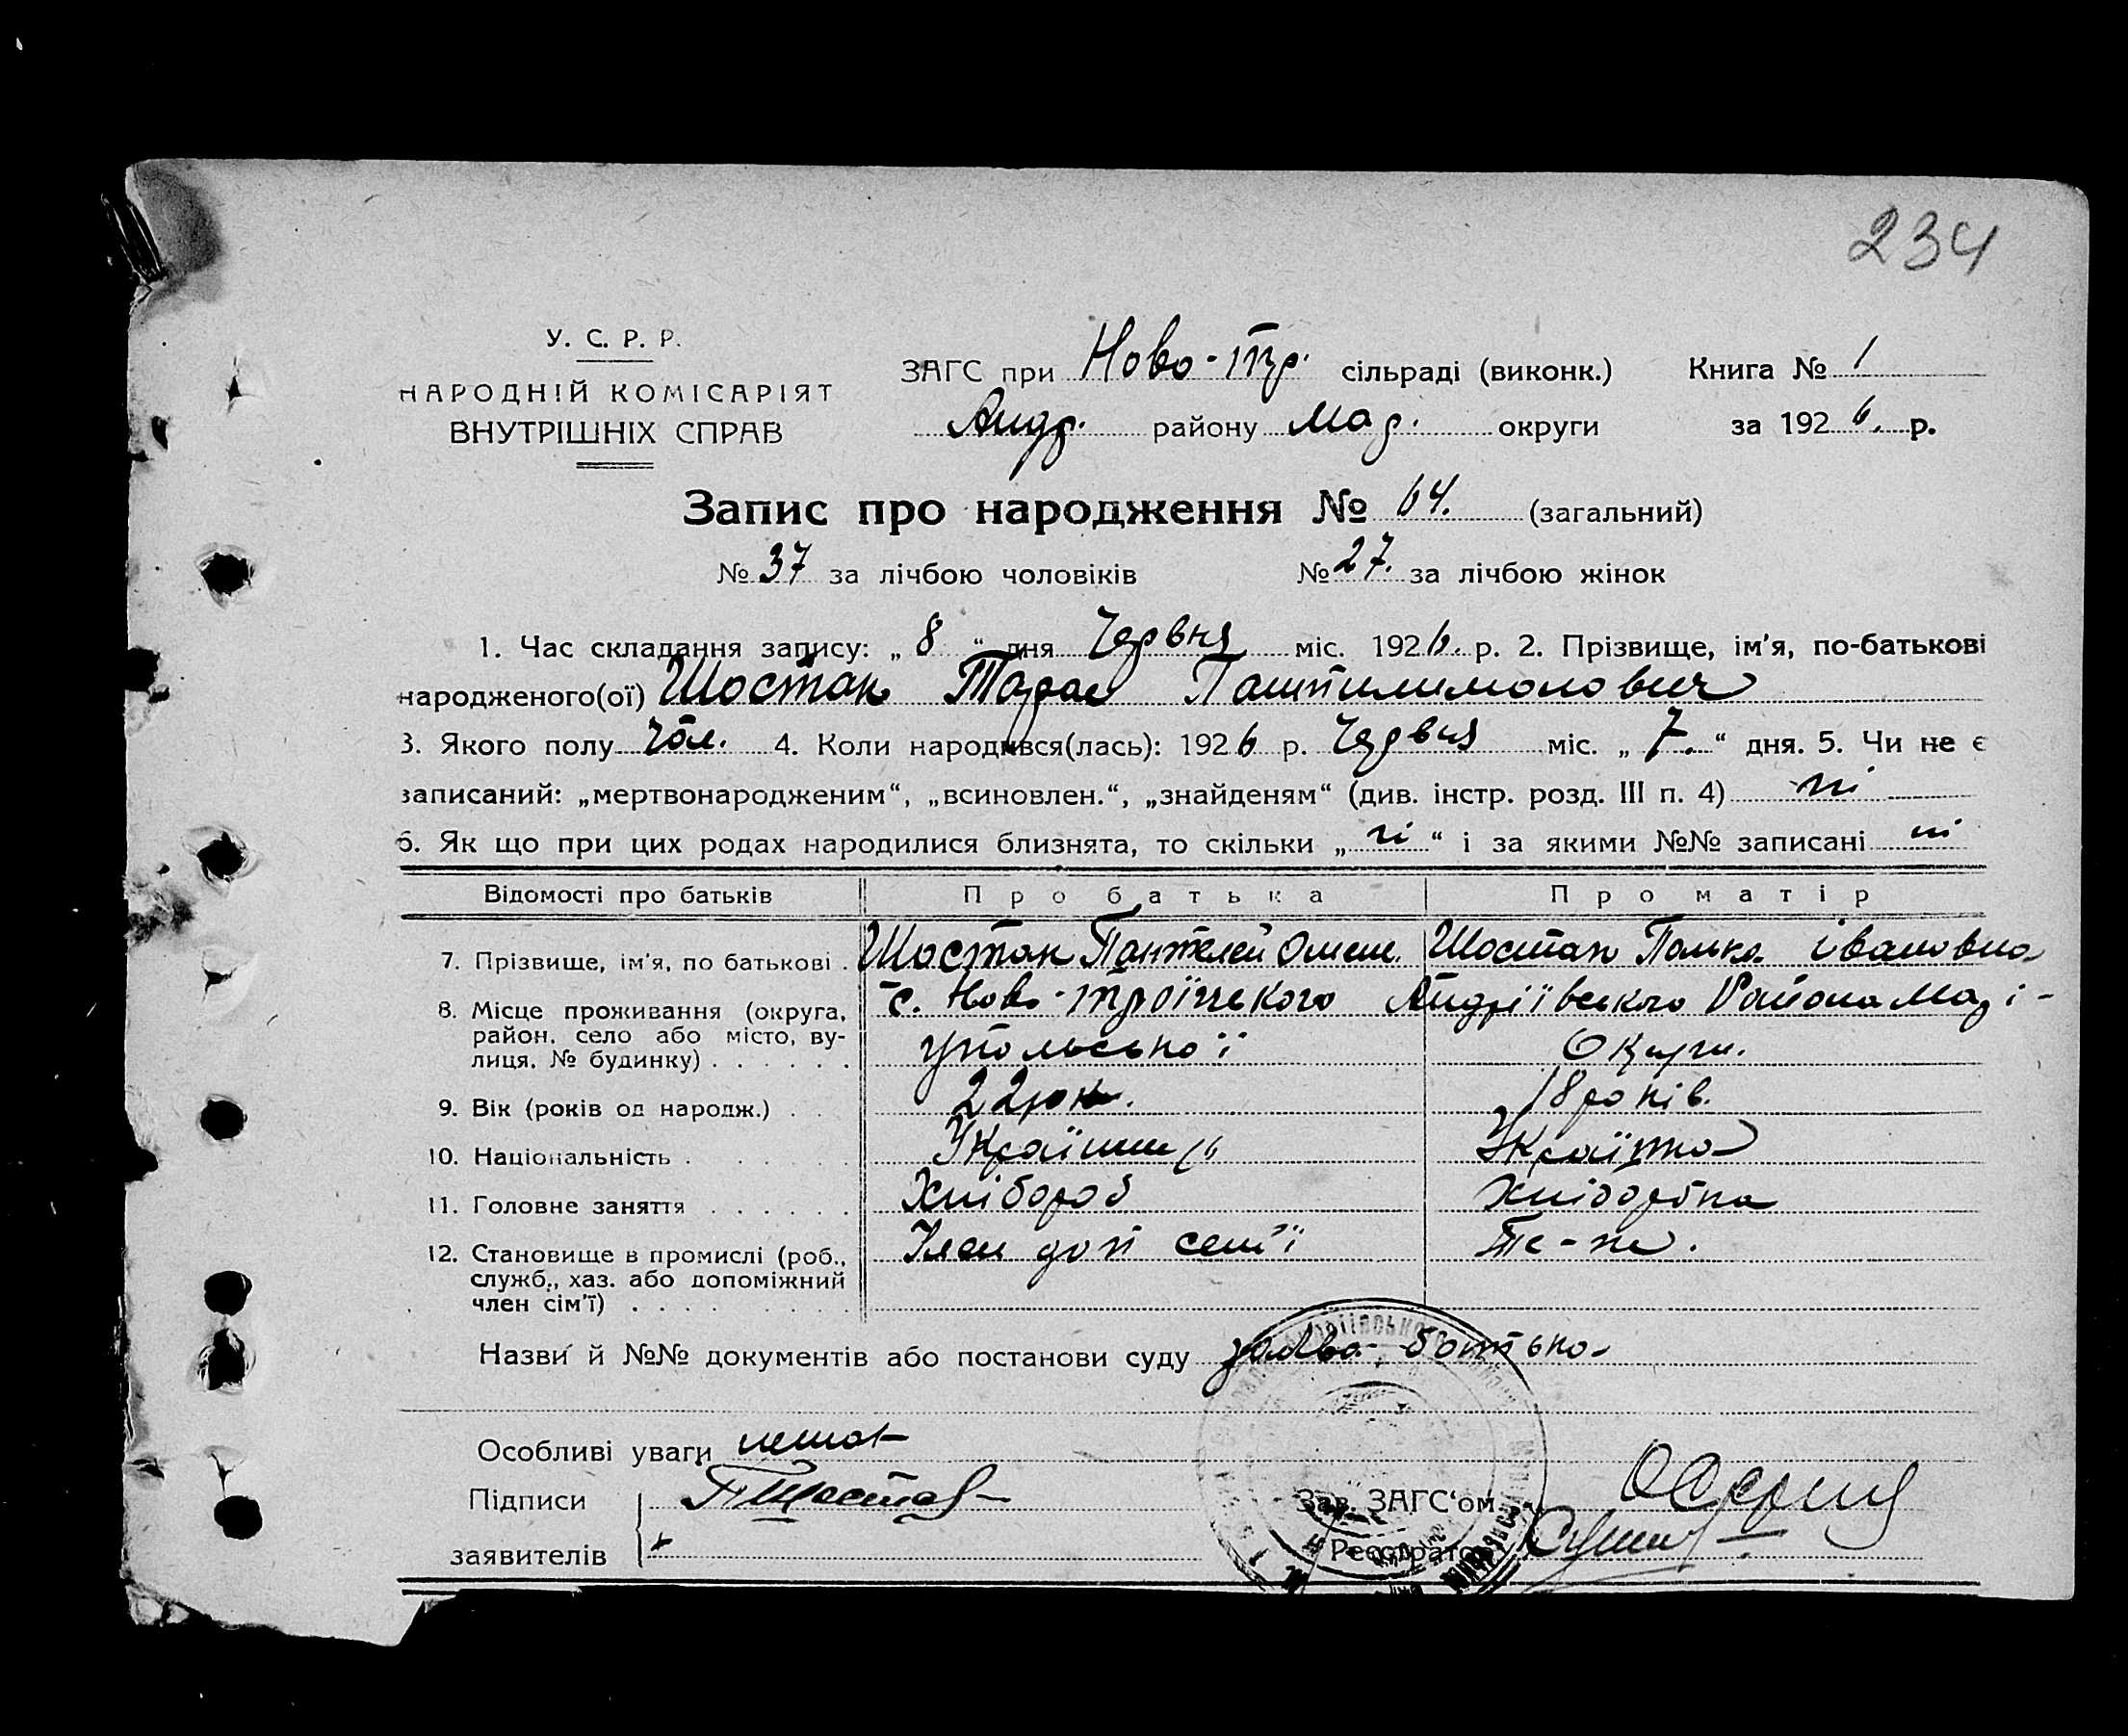 234
У. С. Р. Р.
НАРОДНІЙ КОМІСАРІЯТ
ВНУТРІШНІХ СПРАВ
ЗАГС при Ново-Тр. сільраді (виконк.) Книга № 1
Андр. району Мар. округи за 1926. р.
Запис про народження № 64. (загальний)
№ 37 за лічбою чоловіків № 27. за лічбою жінок
1. Час складання запису: „8“ дня Червня міс. 1926. р. 2. Прізвище, ім'я, по-батькові
народженого(ої) Шостак Тарас
3. Якого полу чол. 4. Коли народився(лась): 1926 р. Червня міс. „7.“ дня. 5. Чи не є
записаний: „мертвонародженим“, „всиновлен.“, „знайденям“ (див. інстр. розд. III п. 4) ні
6. Як що при цих родах народилися близнята, то скільки „ні“ і за якими №№ записані ні
Відомості про батьків Про батька Про матір
7. Прізвище, ім'я, по батькові . Шостак Пантелей Омел. Шостак Полька Івановна
8. Місце проживання (округа, с. Ново-Троїцького Андріївського Района Марі-
район, село або місто, ву- упольської Округи.
лиця, № будинку) . . . . . .
9. Вік (років од народж.) . . 22 рок. 18 років.
10. Національність . . . . . . Українець Українка
11. Головне заняття . . . . . . Хлібороб Хліборобка
12. Становище в промислі (роб., Член доп семї Те-ж.
служб., хаз. або допоміжний
член сім'ї) . . . . . . . .
Назви й №№ документів або постанови суду заява батька
Особливі уваги нема
Підписи П Шостак Зав. ЗАГС'ом
заявителів Реєстратор